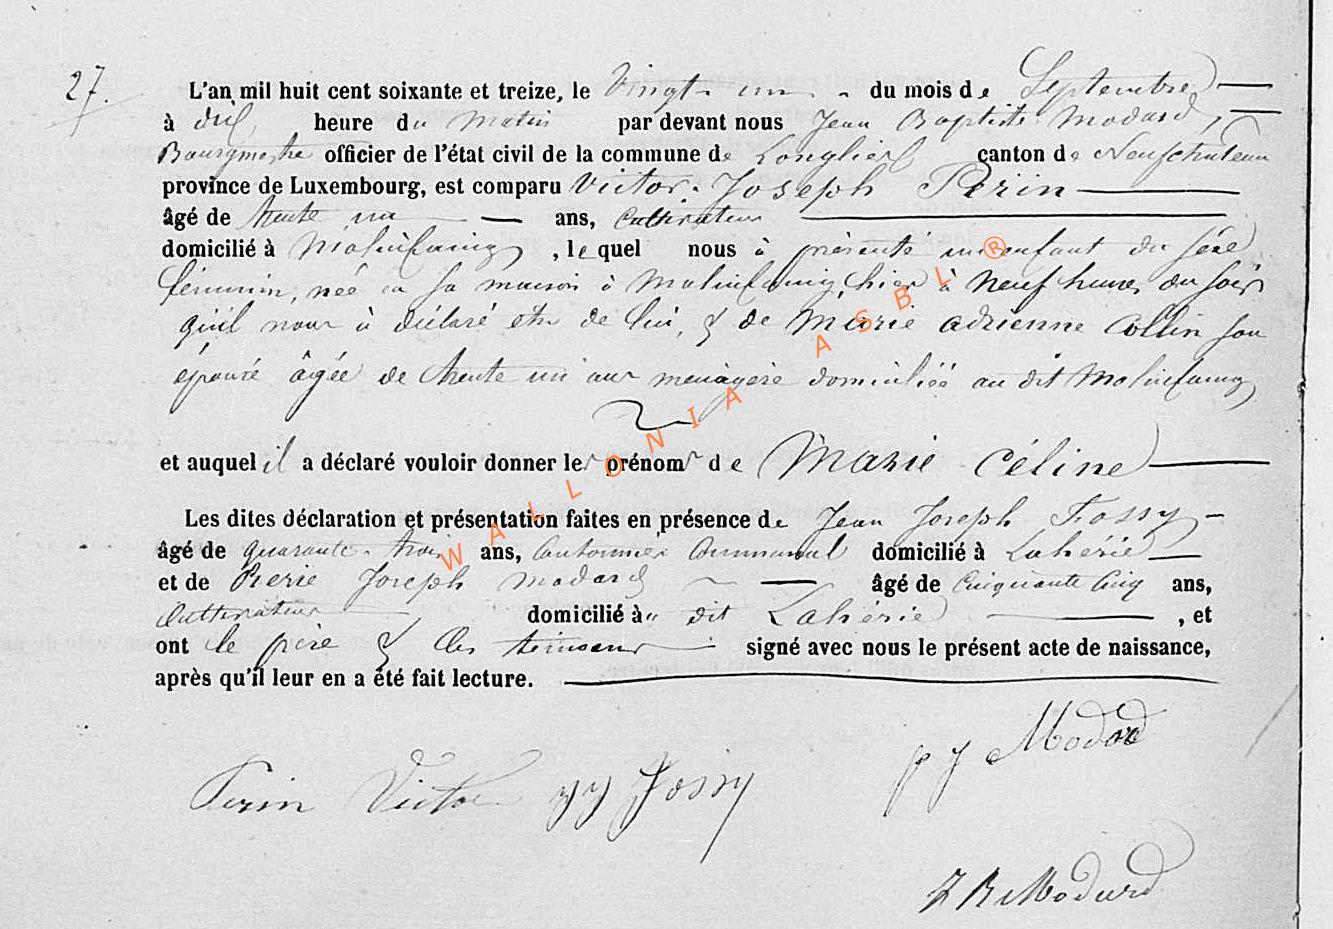 27.
L'an mil huit cent soixante et treize, le Vingt un du mois de Septembre
à dix heure du Matin par devant nous Jean Baptiste Modard,
Bourgmestre officier de l'état civil de la commune de Longlier canton de Neufchateau
province de Luxembourg, est comparu Victor Joseph Perin
âgé de trente un ans, Cultivateur
domicilié à Molinfaing, lequel nous à présenté un enfant du sexe
féminin, née en sa maison à Molinfaing, hier à neuf heures du soir
qu'il nous à déclaré être de lui, & de Marie Adrienne Collin son
épouse âgée de trente un ans menagère domiciliée au dit Molinfaing
et auquel il a déclaré vouloir donner les prénoms de Marie Céline
Les dites déclaration et présentation faites en présence de Jean Joseph Fossy
âgé de quarante trois ans, Cantonnier Communal domicilié à Lahérie
et de Pierre Joseph Modard âgé de Cinquante Cinq ans,
Cultivateur domicilié à dit Lahérie, et
ont le père & les témoins signé avec nous le présent acte de naissance,
après qu'il leur en a été fait lecture.
p j Modard
Perin Victor jj Fossy
J B Modard
WALLONIA ASBL ®